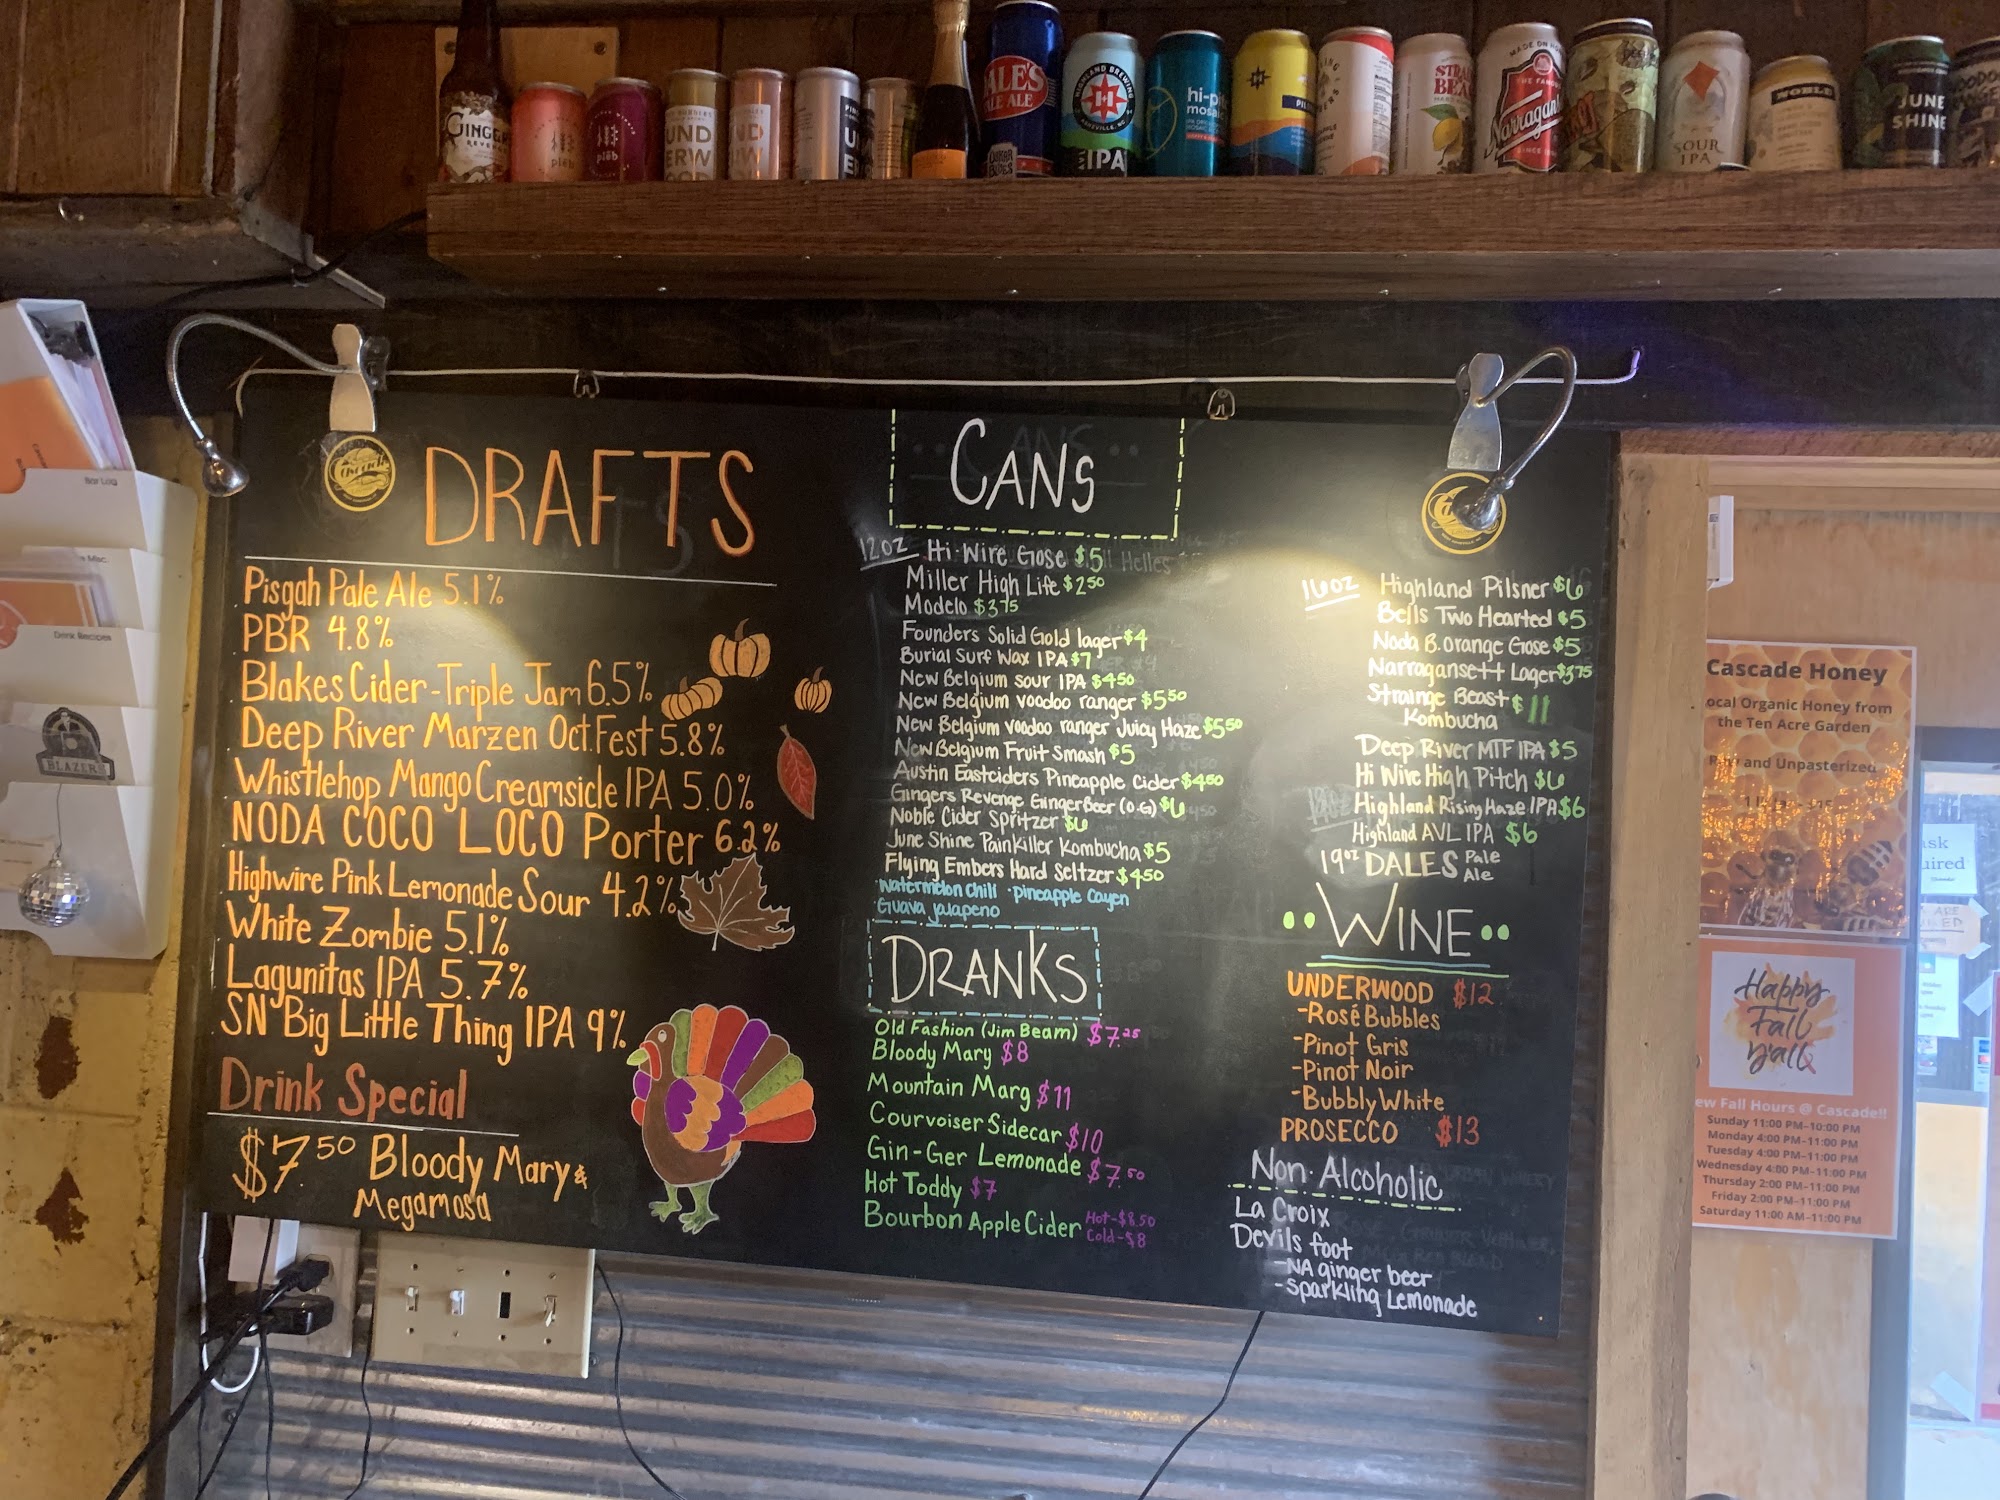 GINGER
plēb
plēb
UND
ERW
IPA
hi-pitch
mosaic
Narragansett
SOUR
IPA
NOBLE
JUNE
SHINE
Bar Log
Misc.
Drink Recipes
BLAZERS
DRAFTS
Pisgah Pale Ale 5.1%
PBR 4.8%
Blakes Cider-Triple Jam 6.5%
Deep River Marzen Oct.Fest 5.8%
Whistlehop Mango Creamsicle IPA 5.0%
NODA COCO LOCO Porter 6.2%
Highwire Pink Lemonade Sour 4.2%
White Zombie 5.1%
Lagunitas IPA 5.7%
SN Big Little Thing IPA 9%
Drink Special
$7.50 Bloody Mary &
Megamosa
CANS
12oz Hi-Wire Gose $5
Miller High Life $2.50
Modelo $3.75
Founders Solid Gold lager $4
Burial Surf Wax IPA $7
New Belgium sour IPA $4.50
New Belgium voodoo ranger $5.50
New Belgium voodoo ranger Juicy Haze $5.50
New Belgium Fruit Smash $5
Austin Eastciders Pineapple Cider $4.50
Gingers Revenge GingerBeer (O.G) $6
Noble Cider Spritzer $6
June Shine Painkiller Kombucha $5
Flying Embers Hard Seltzer $4.50
·Watermelon Chili ·pineapple Cayen
·Guava jalapeno
DRANKS
Old Fashion (Jim Beam) $7.25
Bloody Mary $8
Mountain Marg $11
Courvoiser Sidecar $10
Gin-Ger Lemonade $7.50
Hot Toddy $7
Bourbon Apple Cider Hot-$8.50
Cold-$8
16oz Highland Pilsner $6
Bells Two Hearted $5
Noda B.orange Gose $5
Narragansett Lager $3.75
Strainge Beast $11
Kombucha
Deep River MTF IPA $5
Hi Wire High Pitch $6
Highland Rising Haze IPA $6
Highland AVL IPA $6
19oz DALES Pale
Ale
WINE
UNDERWOOD $12
-Rosé Bubbles
-Pinot Gris
-Pinot Noir
-Bubbly White
PROSECCO $13
Non·Alcoholic
La Croix
Devils foot
-NA ginger beer
-Sparkling Lemonade
Cascade Honey
ocal Organic Honey from
the Ten Acre Garden
Raw and Unpasterized
Happy
Fall
y'all
ew Fall Hours @ Cascade!!
Sunday 11:00 PM–10:00 PM
Monday 4:00 PM–11:00 PM
Tuesday 4:00 PM–11:00 PM
Wednesday 4:00 PM–11:00 PM
Thursday 2:00 PM–11:00 PM
Friday 2:00 PM–11:00 PM
Saturday 11:00 AM–11:00 PM